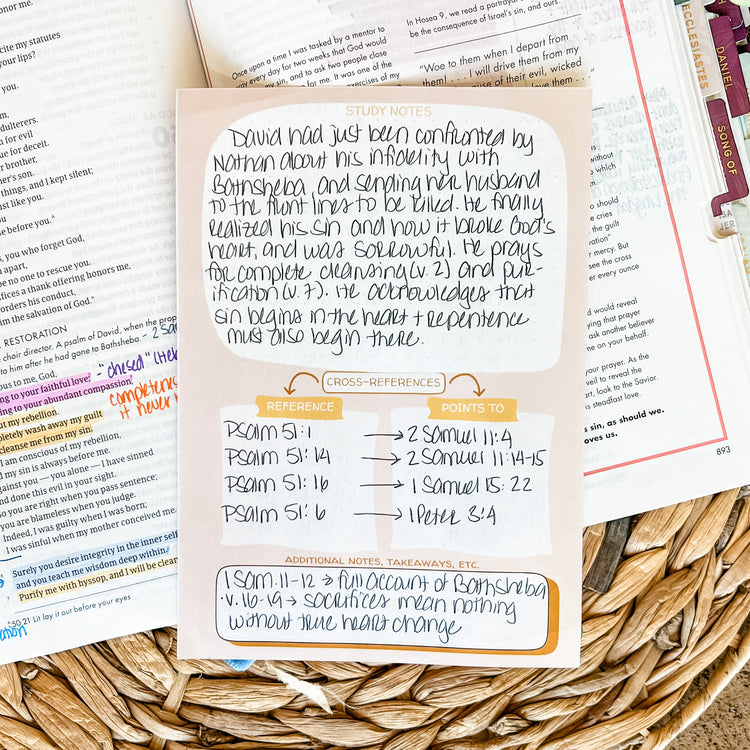 honor me.
cite my statutes
your lips?
you.
adulterers.
for evil
ue for deceit.
r brother,
her's son.
things, and I kept silent;
st like you.
u
e before you."
s, you who forget God,
apart,
be no one to rescue you.
ifices a thank offering honors me,
orders his conduct,
m the salvation of God."
RESTORATION
choir director. A psalm of David, when the prop
to him after he had gone to Bathsheba.
ous to me, God,
ng to your faithful love;
ng to your abundant compassion,
ut my rebellion.
pletely wash away my guilt
cleanse me from my sin.
I am conscious of my rebellion,
d my sin is always before me.
gainst you — you alone — I have sinned
done this evil in your sight.
So you are right when you pass sentence;
you are blameless when you judge.
Indeed, I was guilty when I was born;
I was sinful when my mother conceived me.
Surely you desire integrity in the inner self,
and you teach me wisdom deep within.
Purify me with hyssop, and I will be clean
50:21 Lit lay it out before your eyes
- 2 Sam
- "chesed" (Heb
completeness
it never
STUDY NOTES
David had just been confronted by
Nathan about his infidelity with
Bathsheba, and sending her husband
to the frunt lines to be killed. He finally
realized his sin and how it broke God's
heart, and was sorrowful. He prays
for complete cleansing (v. 2) and pur-
ification (v. 7). He acknowledges that
sin begins in the heart + repentence
must also begin there.
CROSS-REFERENCES
REFERENCE POINTS TO
Psalm 51:1 → 2 Samuel 11:4
Psalm 51:14 → 2 Samuel 11:14-15
Psalm 51:16 → 1 Samuel 15:22
Psalm 51:6 → 1 Peter 3:4
ADDITIONAL NOTES, TAKEAWAYS, ETC.
1 Sam. 11-12 → full account of Bathsheba
·v. 16-19 → sacrifices mean nothing
without true heart change
In Hosea 9, we read a portray
be the consequence of Israel's sin, and ours.
Once upon a time I was tasked by a mentor to
ay every day for two weeks that God would
my sin, and to ask two people close
me for me. It was one of the
exercises of my
"Woe to them when I depart from
them! . . . I will drive them from my
ause of their evil, wicked
ve them . . .
without
which
should
e cries
t the
vation"
mercy. But
see the cross
er every ounce
ould reveal
aying that prayer
ask another believer
me on your behalf.
our prayer. As the
veil to reveal the
art, look to the Savior.
is steadfast love.
s, as should we.
oves us.
893
ECCLESIASTES
DANIEL
SONG OF
ISA
JER